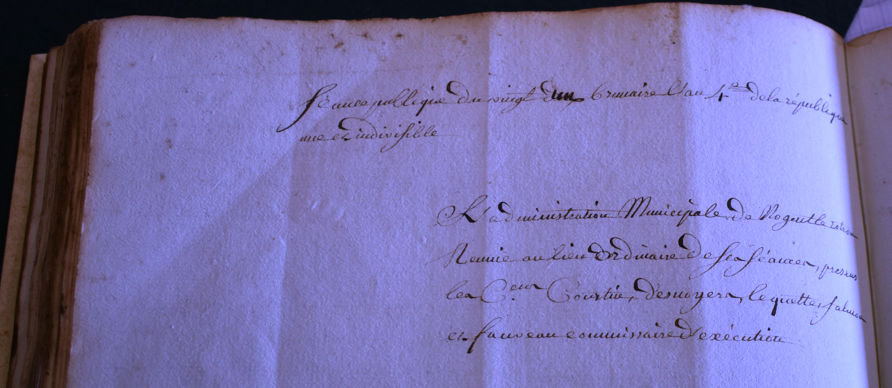 Séance publique du vingt un brumaire L'an 4e de la république
une et indivisible
L'administration Municipale de Nogent le rotrou
Reunie au lieu ordinaire de ses séances, presens
les C.ens Courtin, desnoyers, lequette,
et fauveau commissaire d'exécution